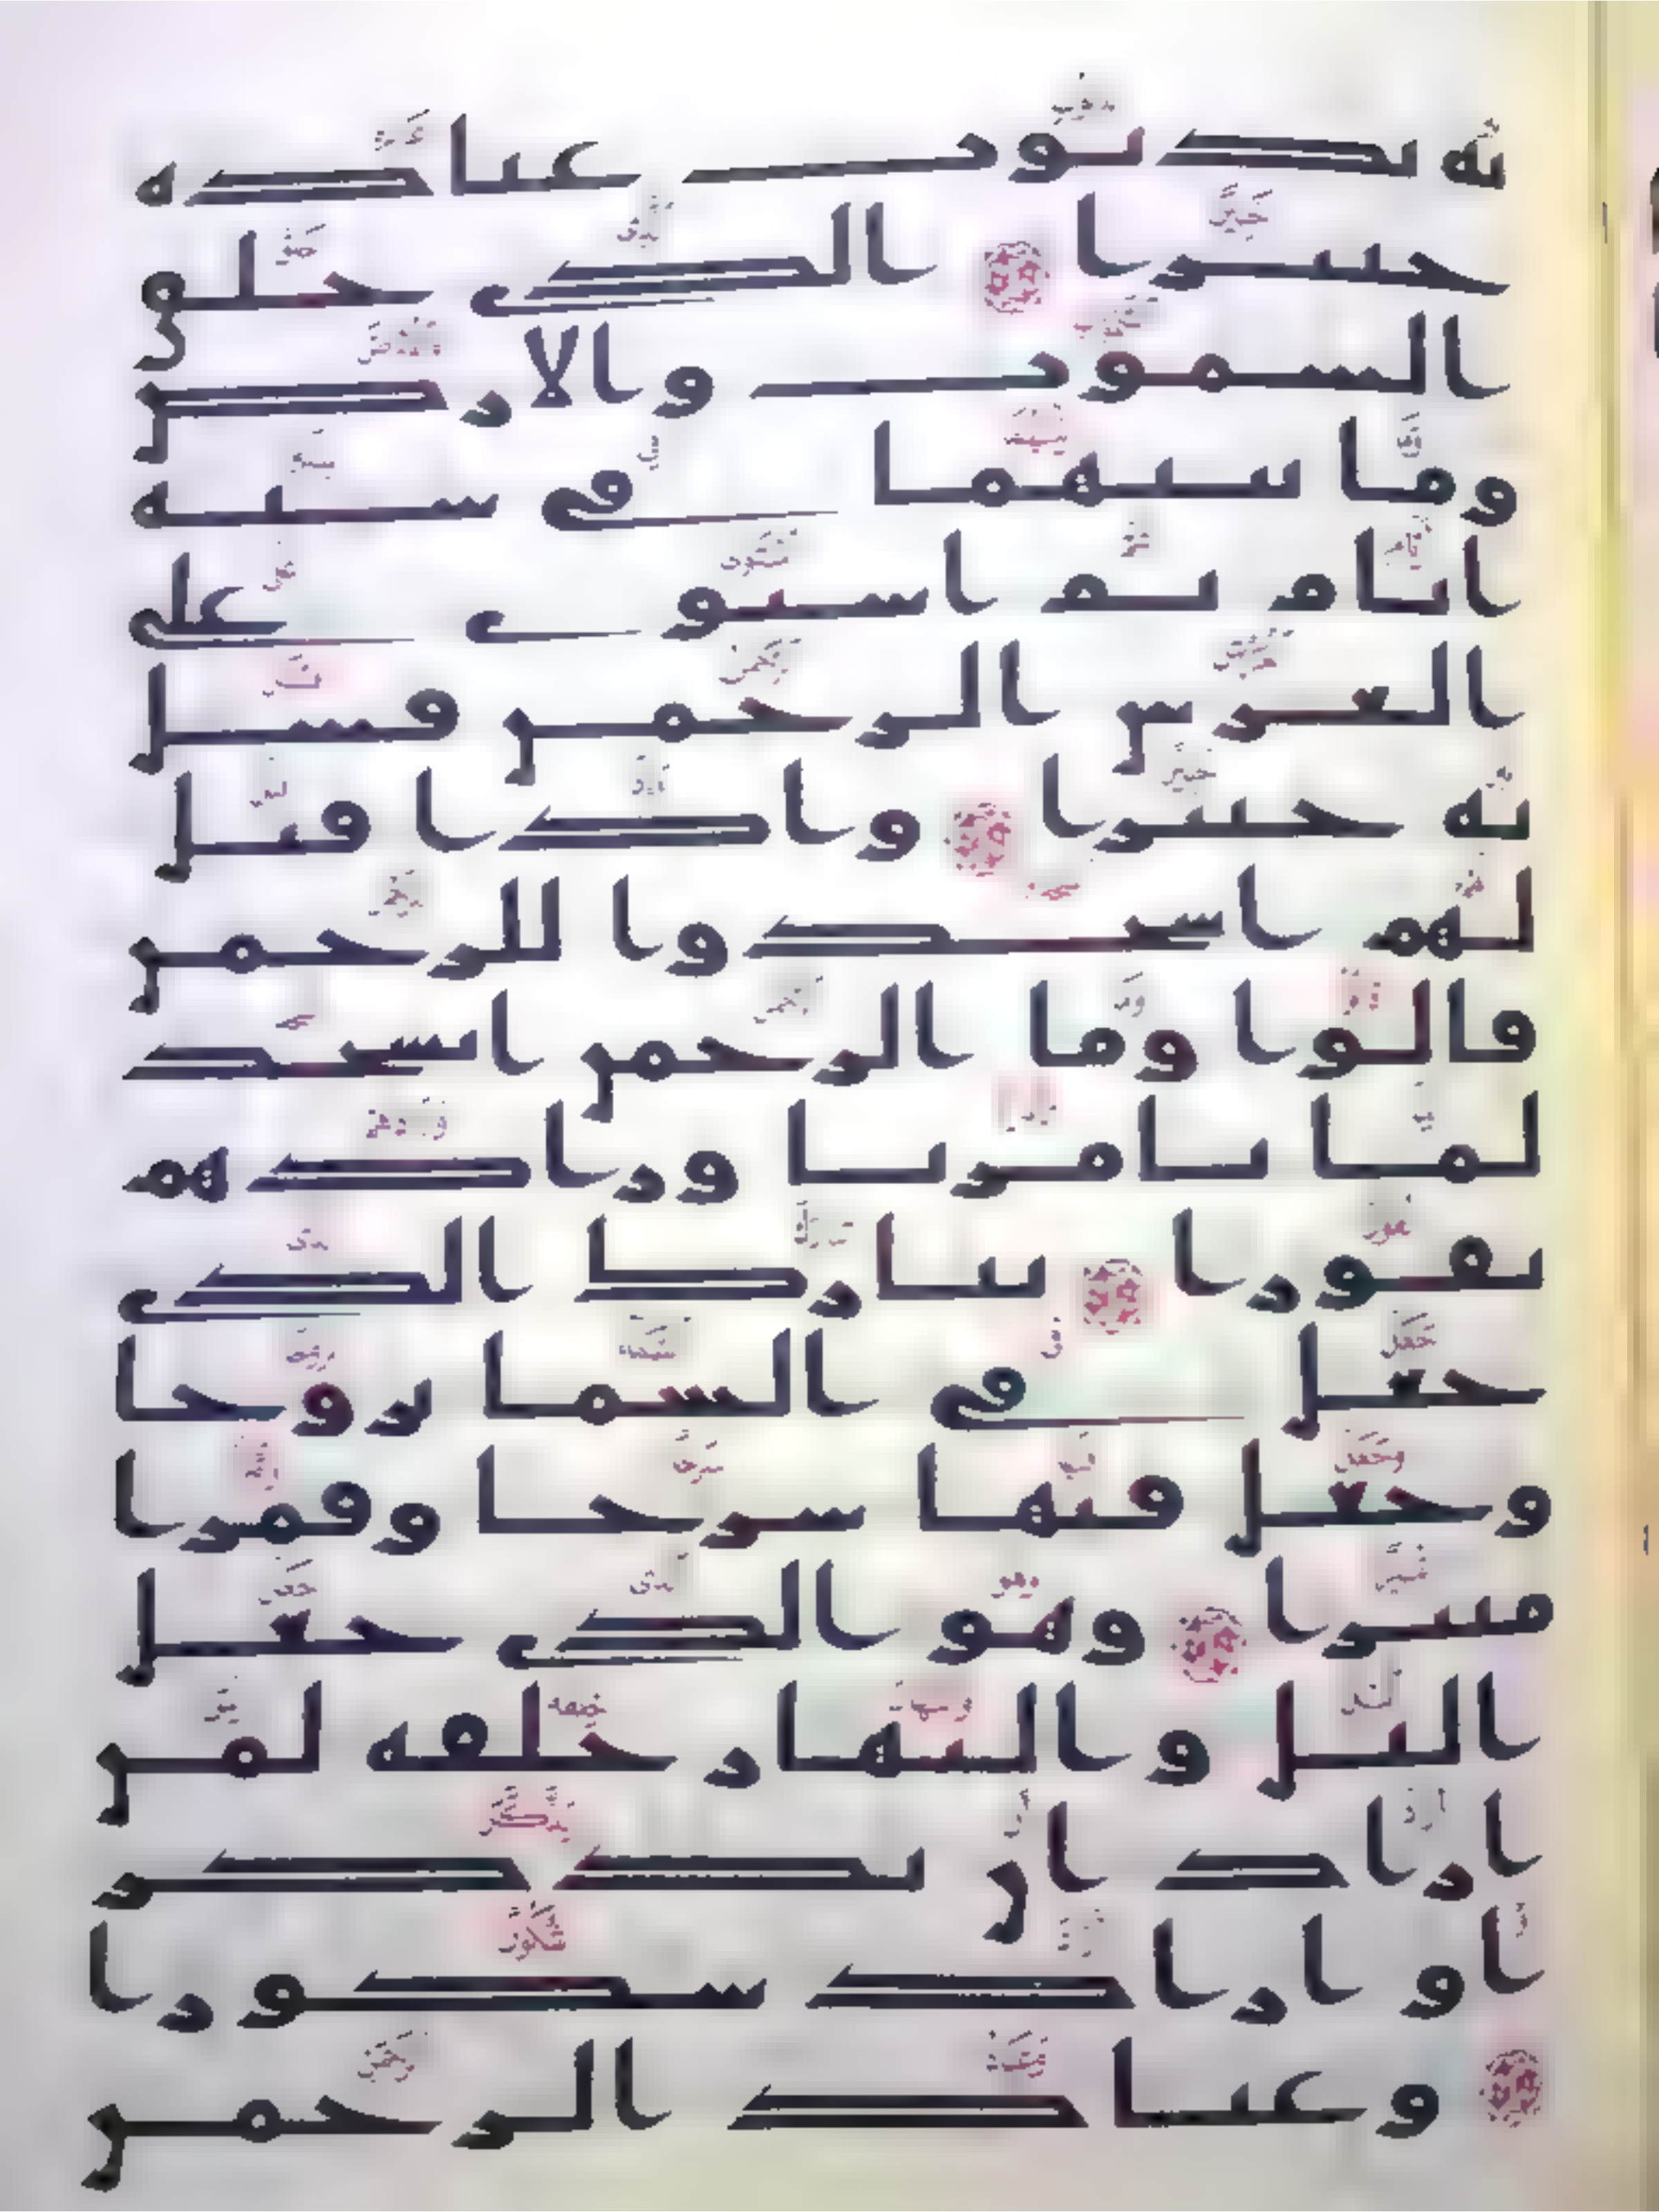 به بذنوب عباده
خبيرا الذي خلق
السموت والارض
وما بينهما في ستة
ايام ثم استوى على
العرش الرحمن فسل
به خبيرا واذا قيل
لهم اسجدوا للرحمن
قالوا وما الرحمن انسجد
لما تامرنا وزادهم
نفورا تبارك الذي
جعل في السما بروجا
وجعل فيها سرجا وقمرا
منيرا وهو الذي جعل
اليل والنهار خلفة لمن
اراد ان يذكر
او اراد شكورا
وعباد الرحمن